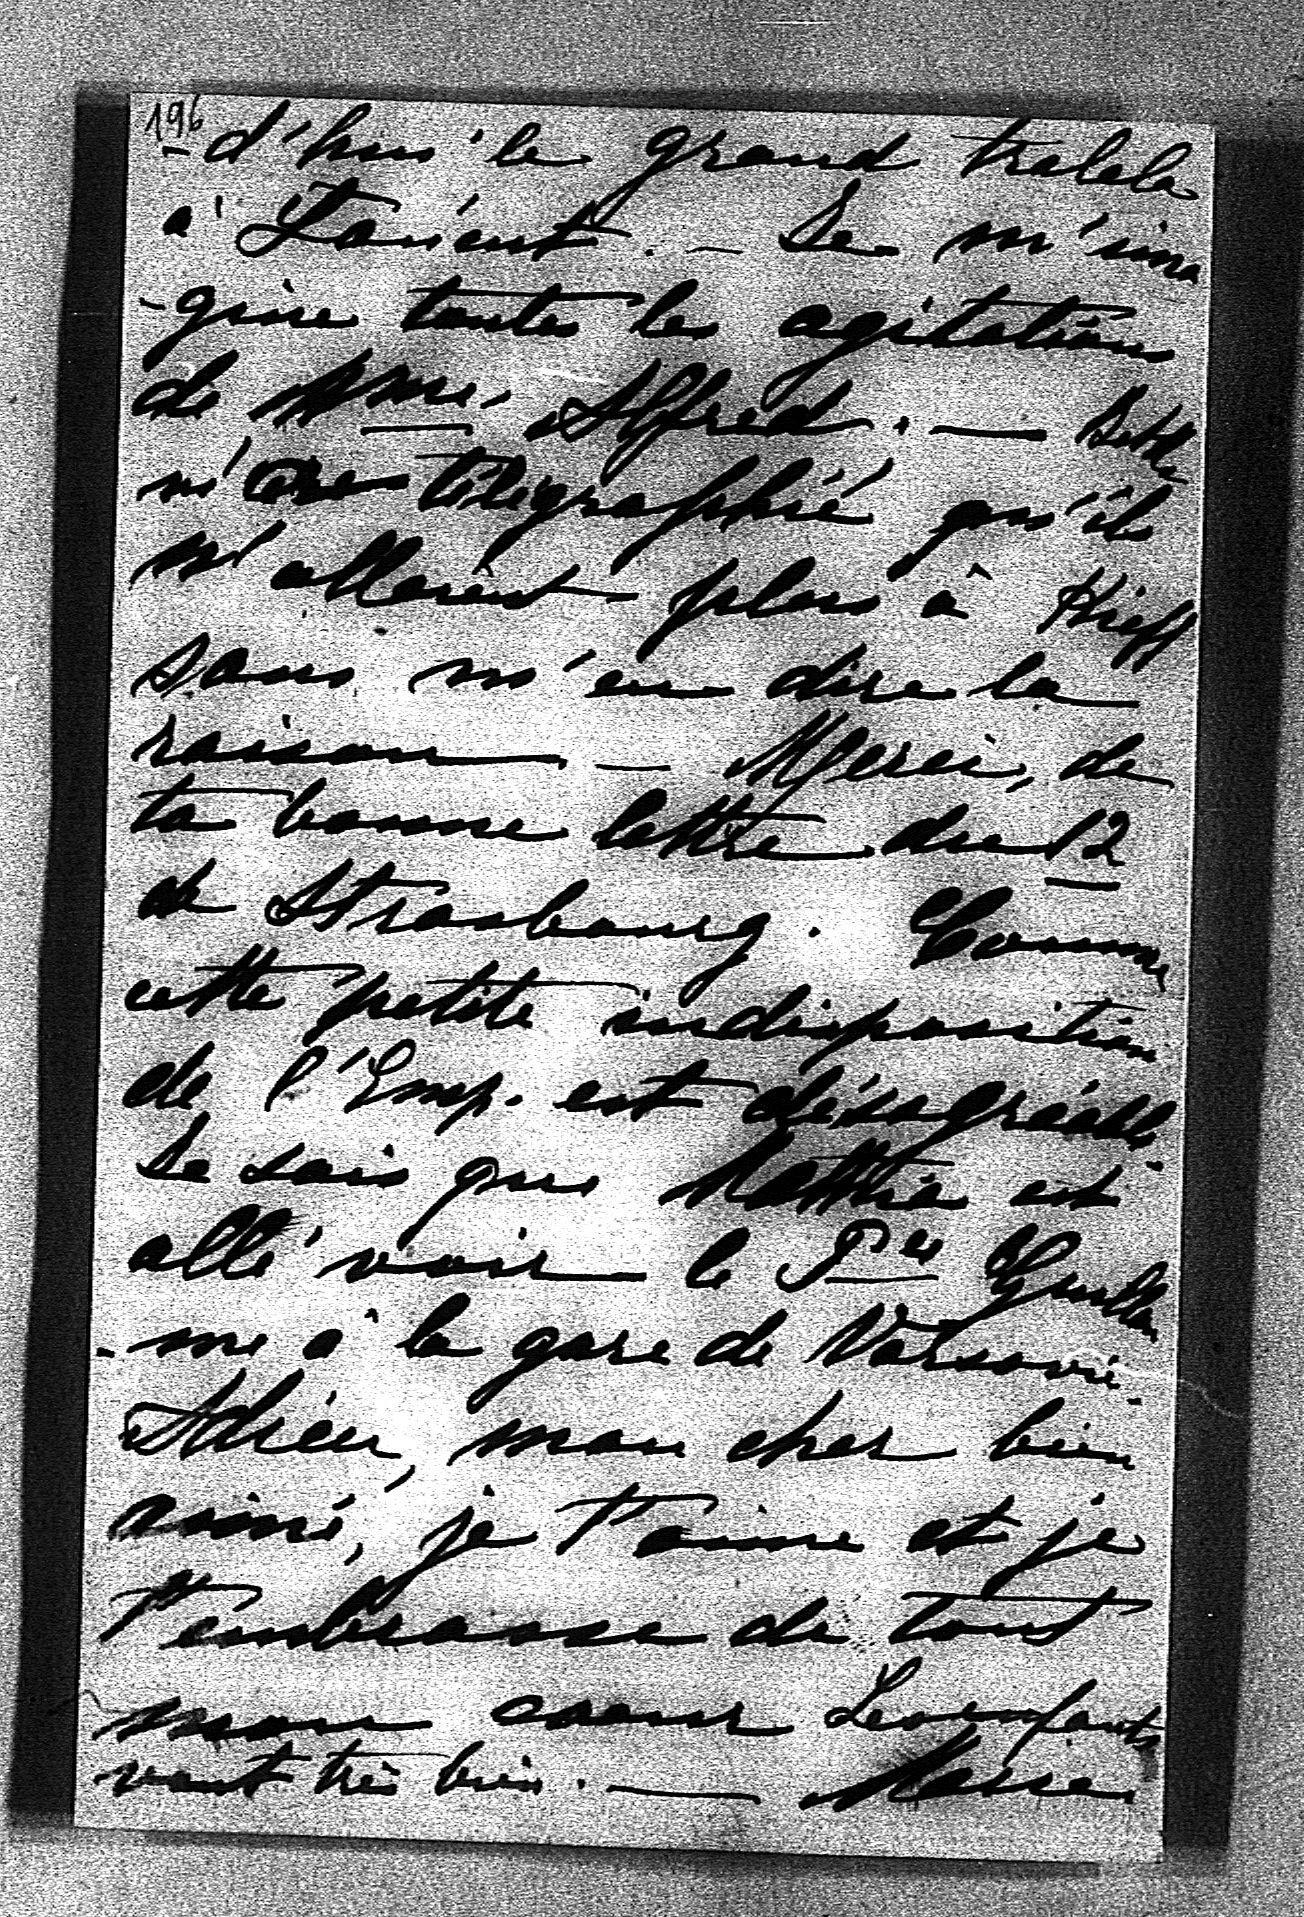 196
- d'hui le grand tralala
à Lorient. — Je m'ima
- gine toutes les agitations
de Mme. Alfred. —
m'a télégraphié qu'ils
n'allaient plus à Kieff
sans m'en dire la
raison. — Merci, de
ta bonne lettre du 12
de Strasbourg. Comme
cette petite indisposition
de l'Emp. est désagréable.
Je sais que est
allé voir le Pce Guillau
- me à la gare de Varsovie.
Adieu, mon cher bien
aimé, je t'aime et je
t'embrasse de tout
mon coeur Les enfants
vont très bien. —